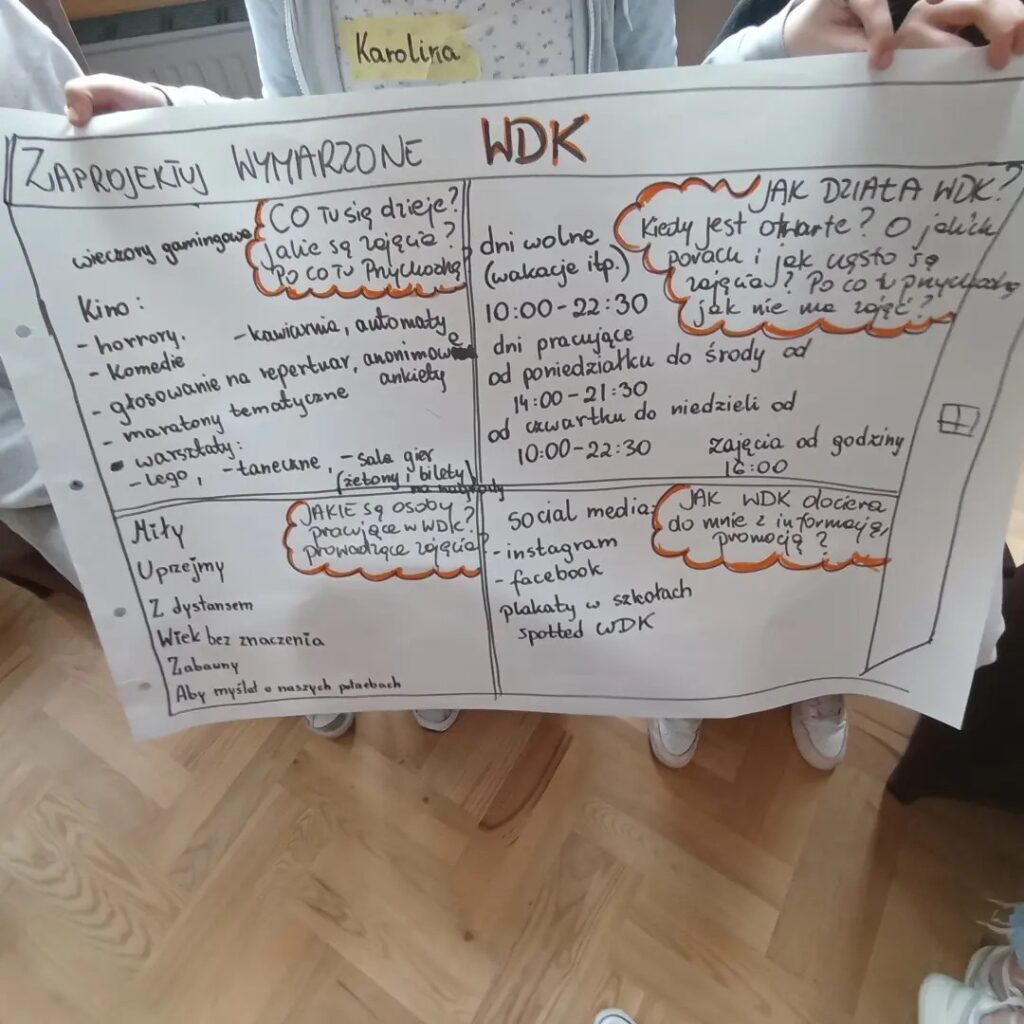 Karolina
ZAPROJEKTUJ WYMARZONE WDK
CO TU się dzieje?
Jakie są zajęcia?
Po co tu Przychodzą
wieczory gamingowe
Kino:
- horrory.
- Komedie
- kawiarnia, automaty
- głosowanie na repertuar, anonimowe
ankiety
- maratony tematyczne
- warsztaty:
- lego, - taneczne, - sala gier
(żetony i bilety)
na nagrody
JAK DZIAŁA WDK?
Kiedy jest otwarte? O jakich
porach i jak często są
zajęcia? Po co tu przychodzą
jak nie ma zajęć?
dni wolne
(wakacje itp.)
10:00-22:30
dni pracujące
od poniedziałku do środy od
14:00-21:30
od czwartku do niedzieli od
10:00-22:30
zajęcia od godziny
16:00
JAKIE są osoby
pracujące w WDK?
prowadzące zajęcia?
Miły
Uprzejmy
Z dystansem
Wiek bez znaczenia
Zabawny
Aby myślał o naszych potrzebach
JAK WDK dociera
do mnie z informacją,
promocją?
social media:
- instagram
- facebook
plakaty w szkołach
spotted WDK